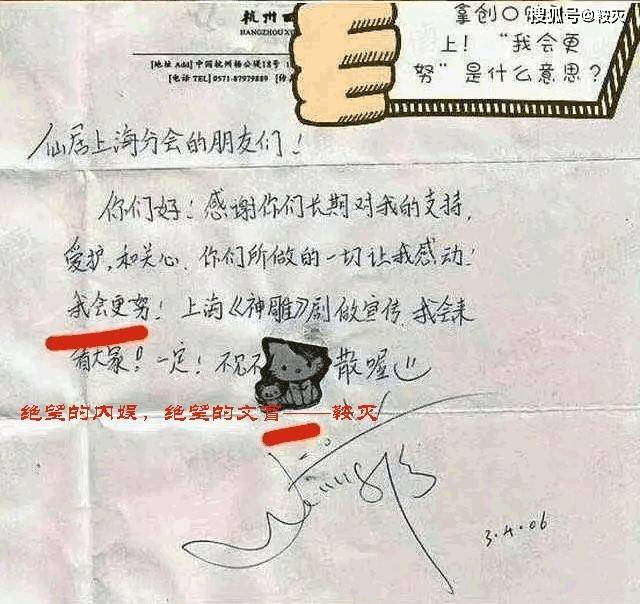 搜狐号@鞍灭
上！“我会更
努”是什么意思？
杭州
HANGZHOUX
[地址 Add] 中国杭州杨公堤18号
[电话 TEL] 0571-87979889
仙居上海分会的朋友们！
你们好！感谢你们长期对我的支持，
爱护，和关心．你们所做的一切让我感动！
我会更努！上海《神雕》剧做宣传，我会来
看大家！一定！不见不 散喔
绝望的内娱，绝望的文盲——鞍灭
3.4.06